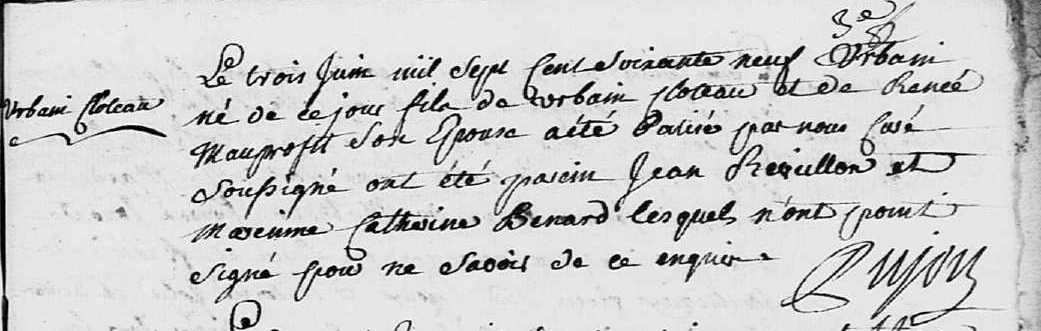 3e
Le trois Juin mil Sept Cent Soixante neuf Urbain
Urbain Ploteau
né de ce jour fils de Urbain ploteau et de Renée
Mauprofit Son Epouse a été Batisé par nous Curé
Soussigné ont été parein Jean Requillon et
Mareinne Catherine Benard lesquels n'ont point
Signé pour ne Savoir de ce enquis.
Pujou
Le